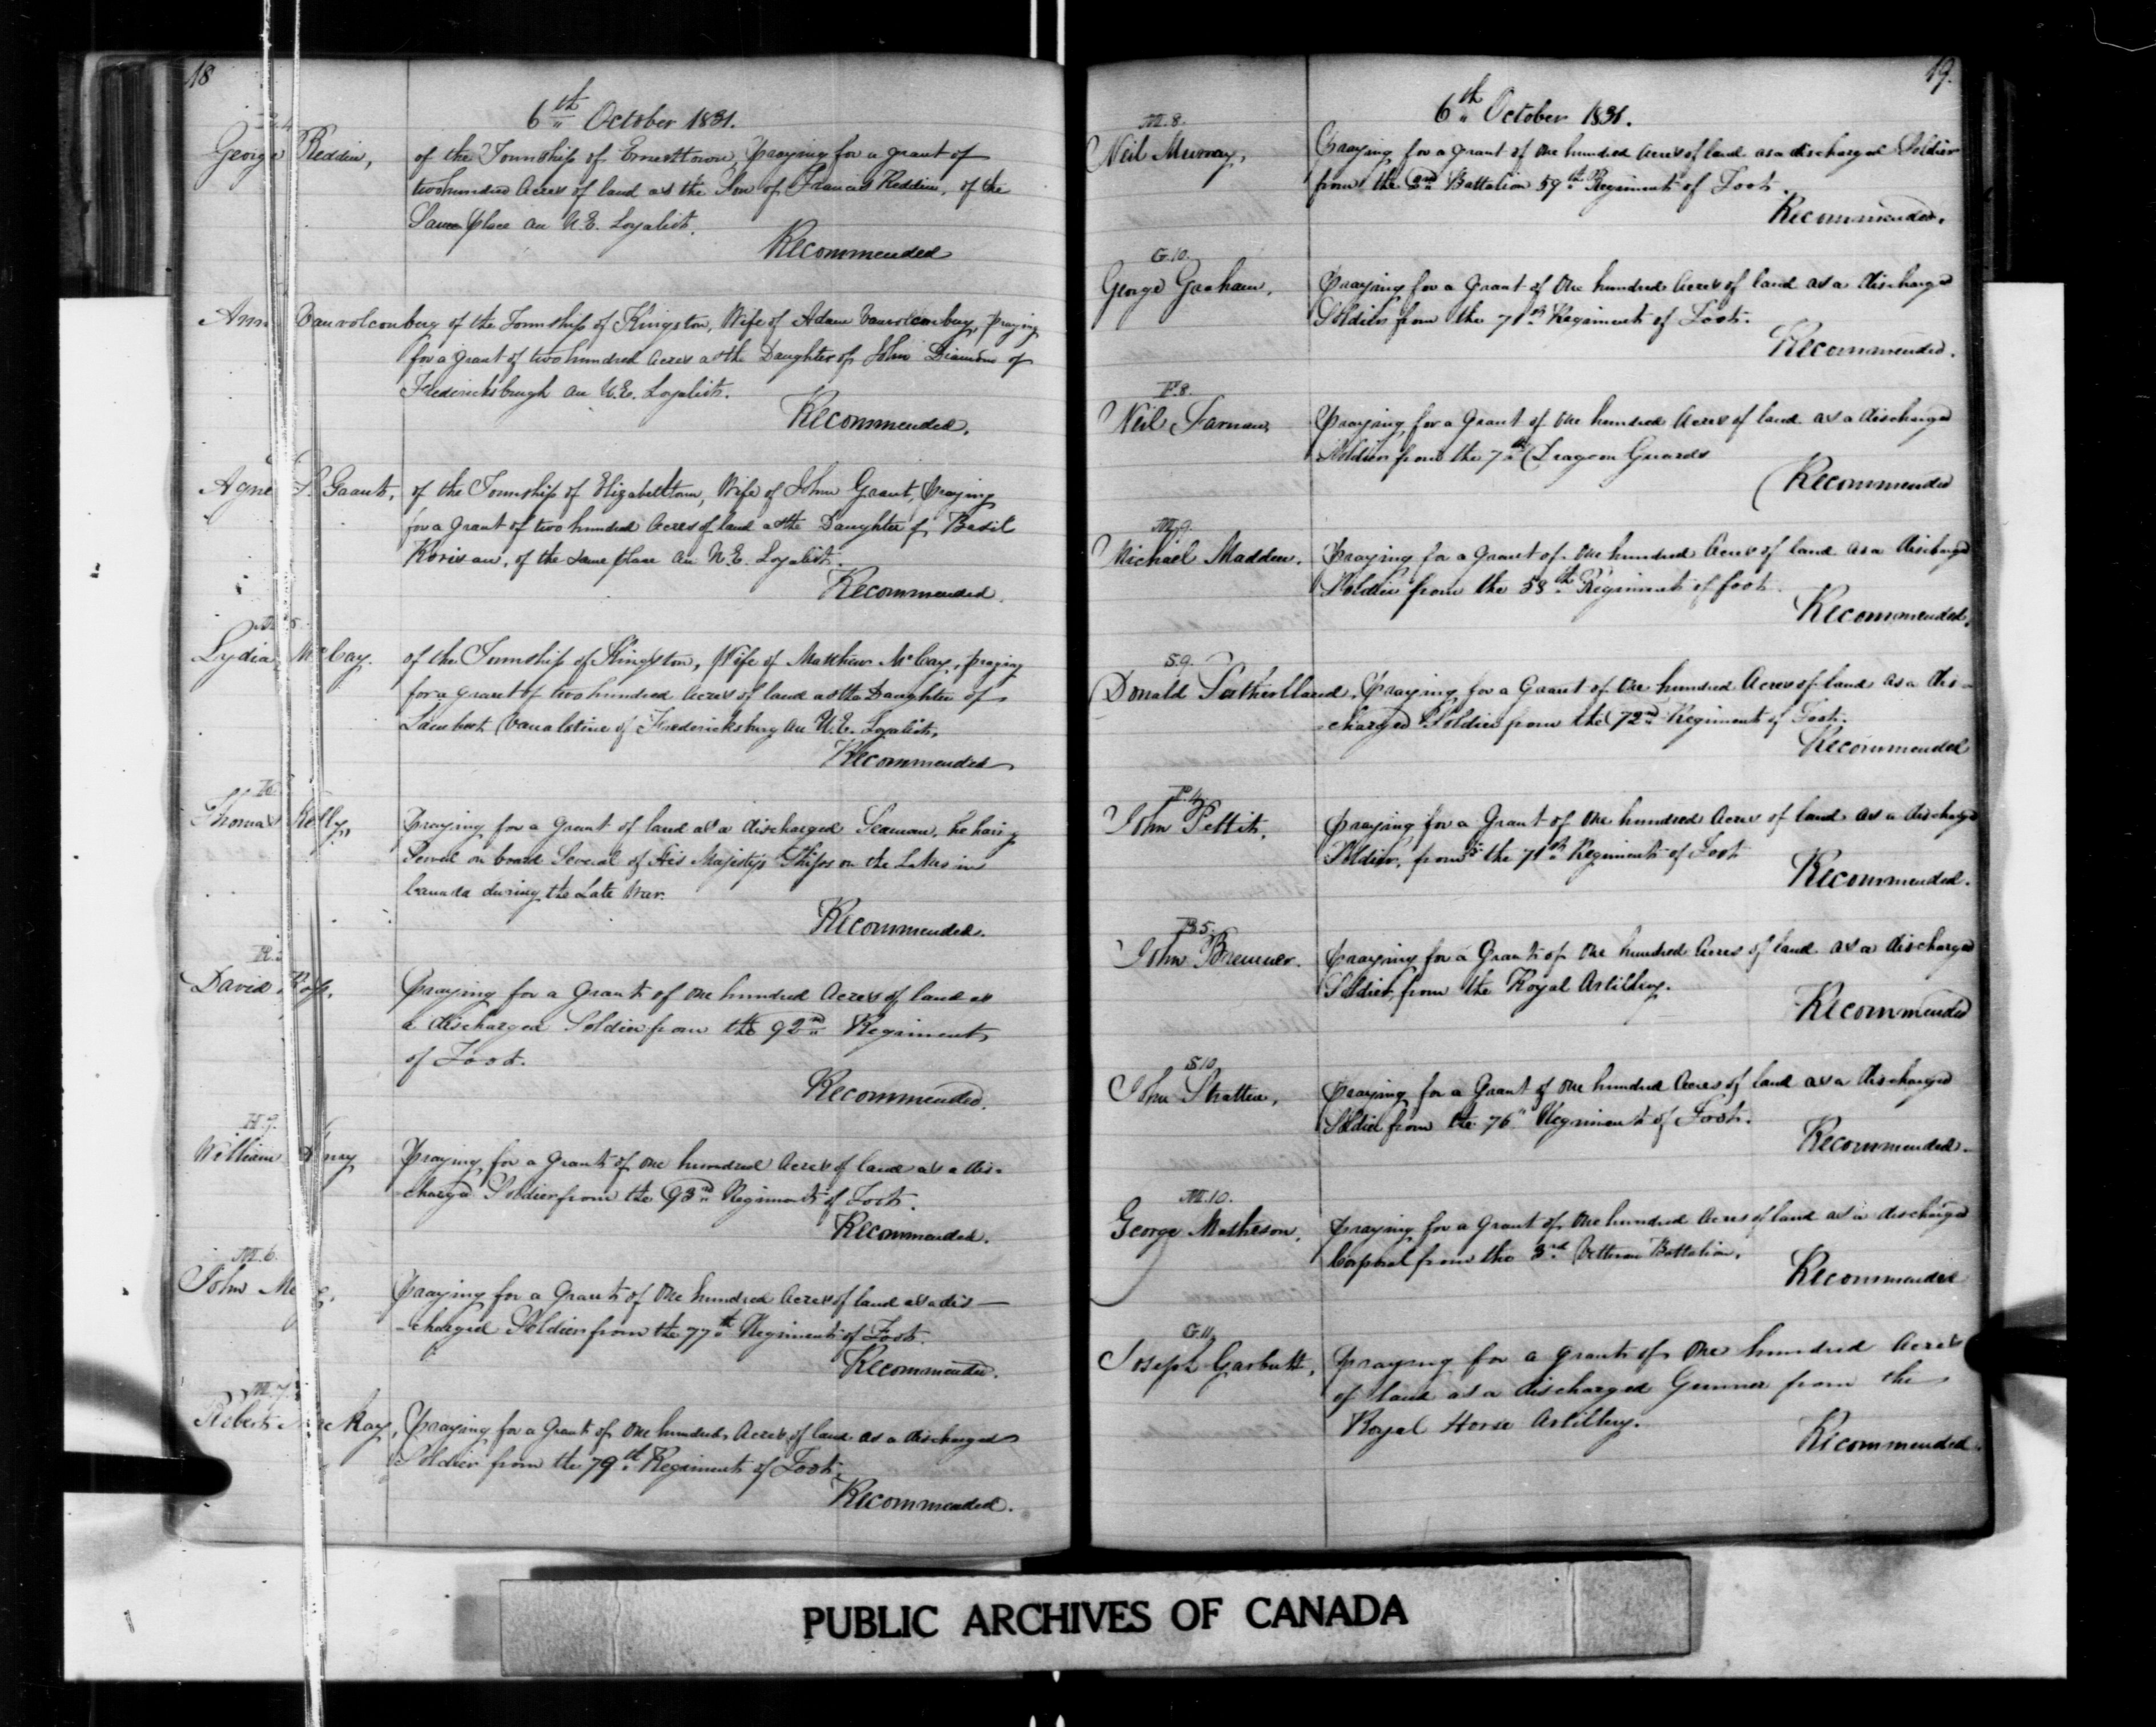 18
6th October 1831.
George Reddin, of the Township of Ernesttown, Praying for a grant of
two hundred Acres of land as the Son of Francis Reddin, of the
Same place an U.E. Loyalist.
Recommended
Ann Vanvolconberg of the Township of Kingston, Wife of Adam Vanvolconberg, praying
for a grant of two hundred Acres as the Daughter of John Diamon of
Fredericksburgh an U.E. Loyalist.
Recommended.
Grant, of the Township of Elizabethtown, Wife of John Grant, Praying
for a Grant of two hundred Acres of land as the Daughter of Basil
of the same place an U.E. Loyalist.
Recommended.
Lydia McCay. of the Township of Kingston, Wife of Matthew McCay, praying
for a grant of two hundred Acres of land as the Daughter of
Lambert Vanalstine of Fredericksburg an U.E. Loyalist,
Recommended
Thomas Kelly, Praying for a Grant of land as a discharged Seaman, he having
Served on board Several of His Majesty's Ships on the Lakes in
Canada during the Late War.
Recommended.
David Ross. Praying for a Grant of one hundred Acres of land as
a discharged Soldier from the 92nd Regiment
of Foot.
Recommended.
H.9.
William Praying for a Grant of one hundred Acres of land as a dis-
charged Soldier from the 93rd Regiment of Foot.
Recommended.
M.6.
John Praying for a Grant of One hundred Acres of land as a dis-
-charged Soldier from the 77th Regiment of Foot.
Recommended.
M.7.
Robert Mackay, Praying for a Grant of One hundred Acres of land as a discharged
Soldier from the 79th Regiment of Foot.
Recommended.
19.
6th October 1831.
M.8.
Neil Murray, Praying for a grant of One hundred Acres of land as a discharged Soldier
from the 2nd Battalion 59th Regiment of Foot.
Recommended.
G.10.
George Graham, Praying for a Grant of One hundred Acres of land as a discharged
Soldier from the 71st Regiment of Foot.
Recommended.
F.8.
Neil Farnan, Praying for a Grant of One hundred Acres of land as a discharged
Soldier from the 7th Dragoon Guards
Recommended
M.9.
Michael Madden. Praying for a Grant of One hundred Acres of land as a discharged
Soldier from the 58th Regiment of foot.
Recommended.
S.9.
Donald Sutherlland, Praying for a Grant of One hundred Acres of land as a dis-
-charged Soldier from the 72nd Regiment of Foot.
Recommended
P.4.
John Pettit, Praying for a Grant of One hundred Acres of land as a discharged
Soldier, from the 71st Regiment of Foot
Recommended.
B.5.
John Bremner. Praying for a Grant of One hundred Acres of land as a discharged
Soldier, from the Royal Artillery.
Recommended
S.10.
John Stratten, Praying for a Grant of One hundred Acres of land as a discharged
Soldier from the 76" Regiment of Foot.
Recommended.
M.10.
George Matheson, Praying for a Grant of One hundred Acres of land as a discharged
Corporal from the 3rd Vetteran Battalion.
Recommended
G.11.
Joseph Garbutt, Praying for a grant of One hundred Acres
of land as a discharged Gunner from the
Royal Horse Artillery.
Recommended.
PUBLIC ARCHIVES OF CANADA